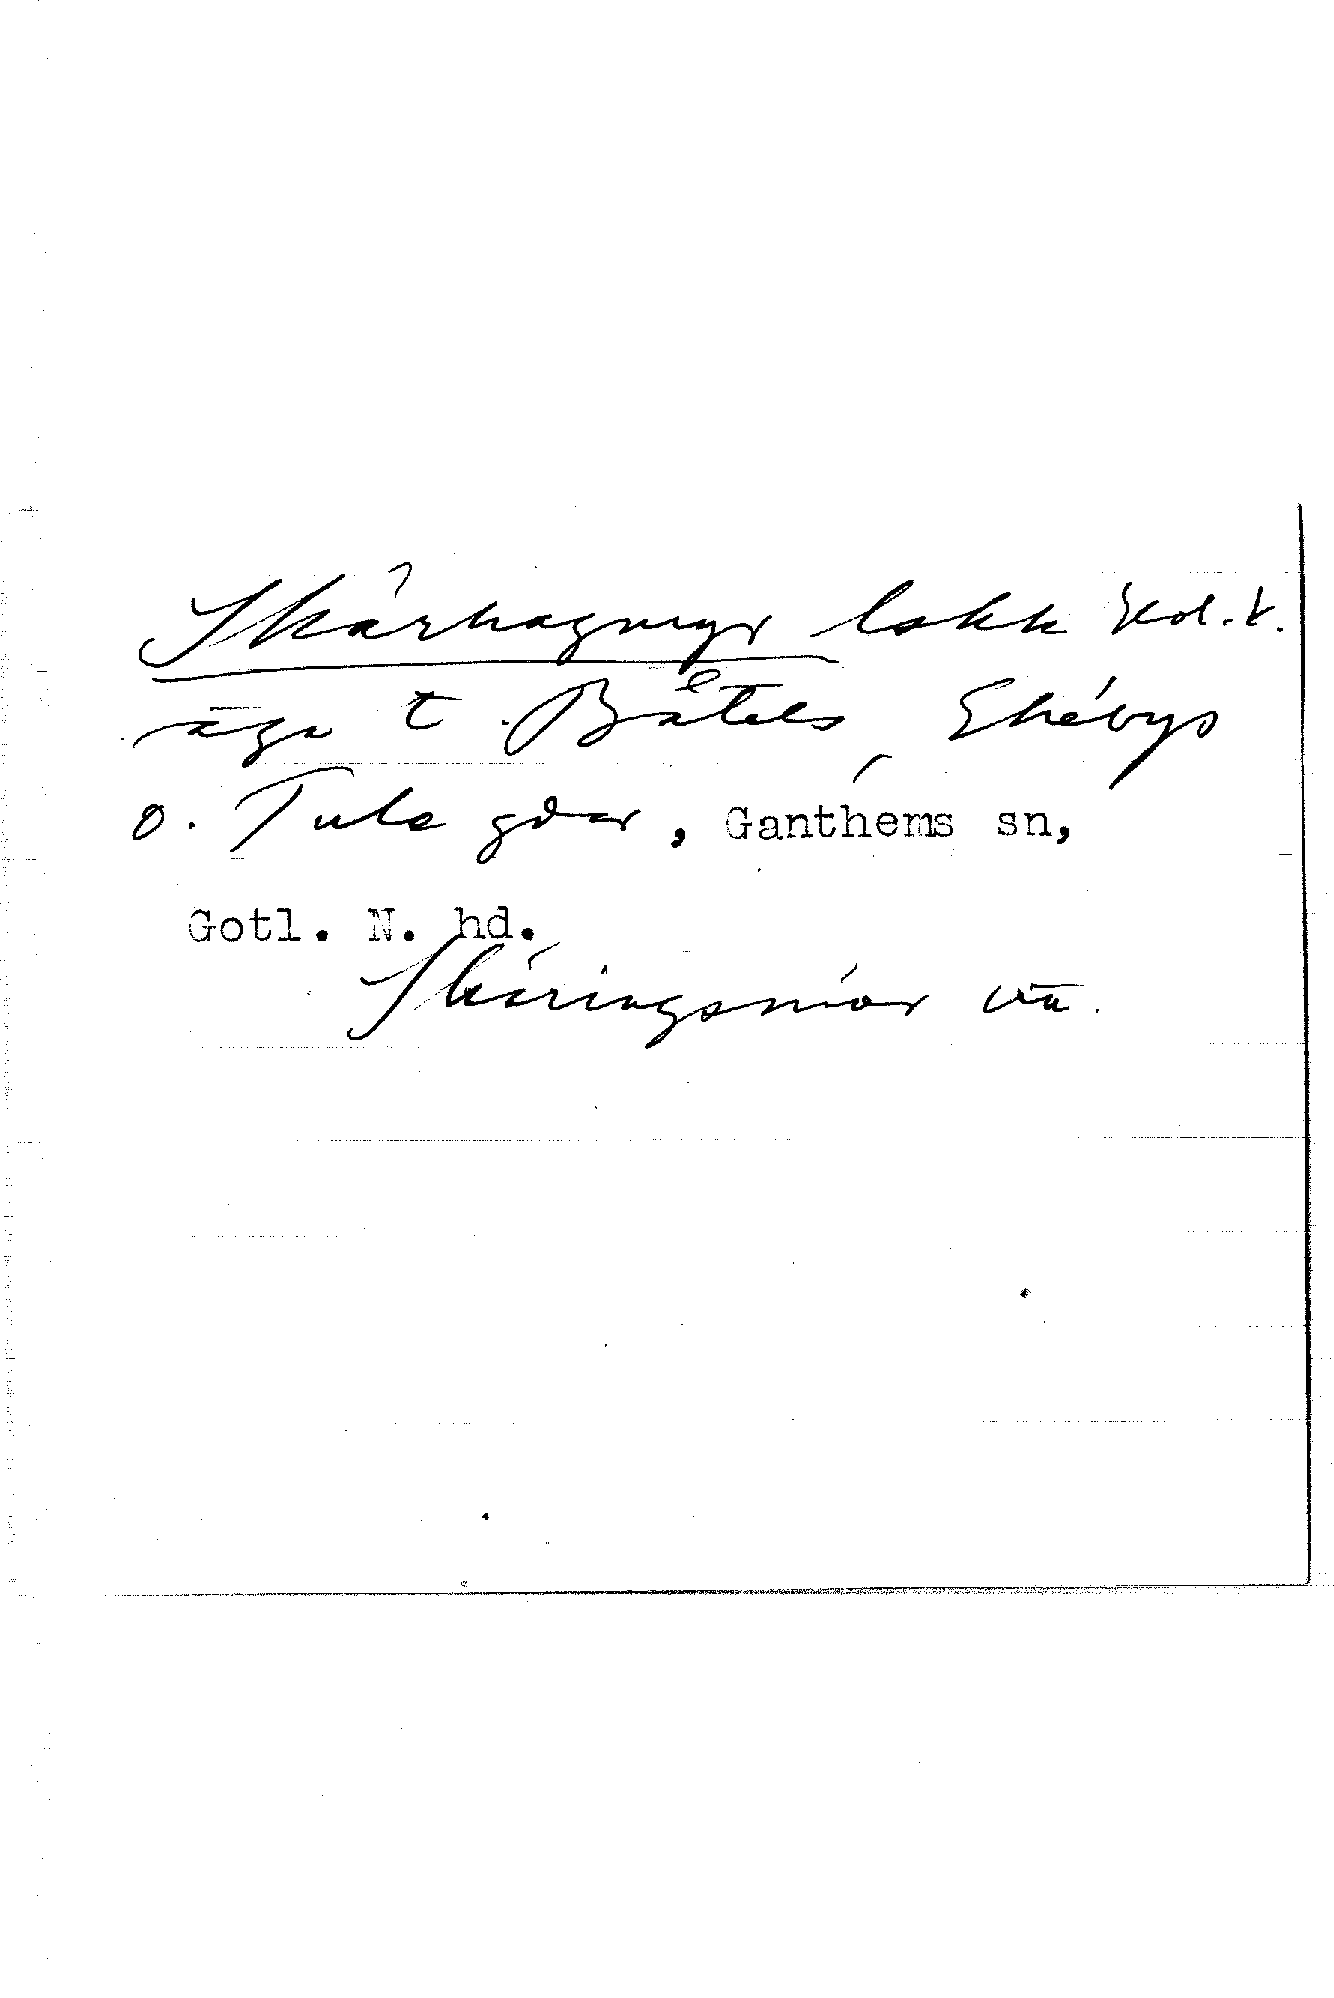 Skärhagmyr lokk
äga t. Båtels, Ekebys
o. Tule gdar, Ganthems sn,
Gotl. N. hd.
Skäringsmior